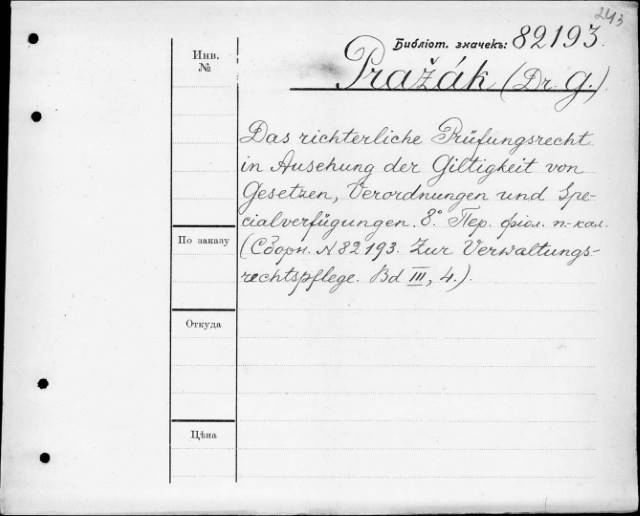 243
Библіот. значекъ: 82193.
Инв.
№
Pražák (Dr. G.)
Das richterliche Prüfungsrecht
in Ansehung der Giltigkeit von
Gesetzen, Verordnungen und Spe-
cialverfügungen. 8° Пер. фіол. п.-кал.
По заказу
(Сборн. N 82193. Zur Verwaltungs-
rechtspflege. Bd III, 4.).
Откуда
Цѣна